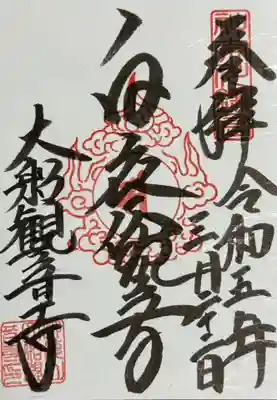 奉拝
令和五年
三月二十二日
白衣観音
大船観音寺